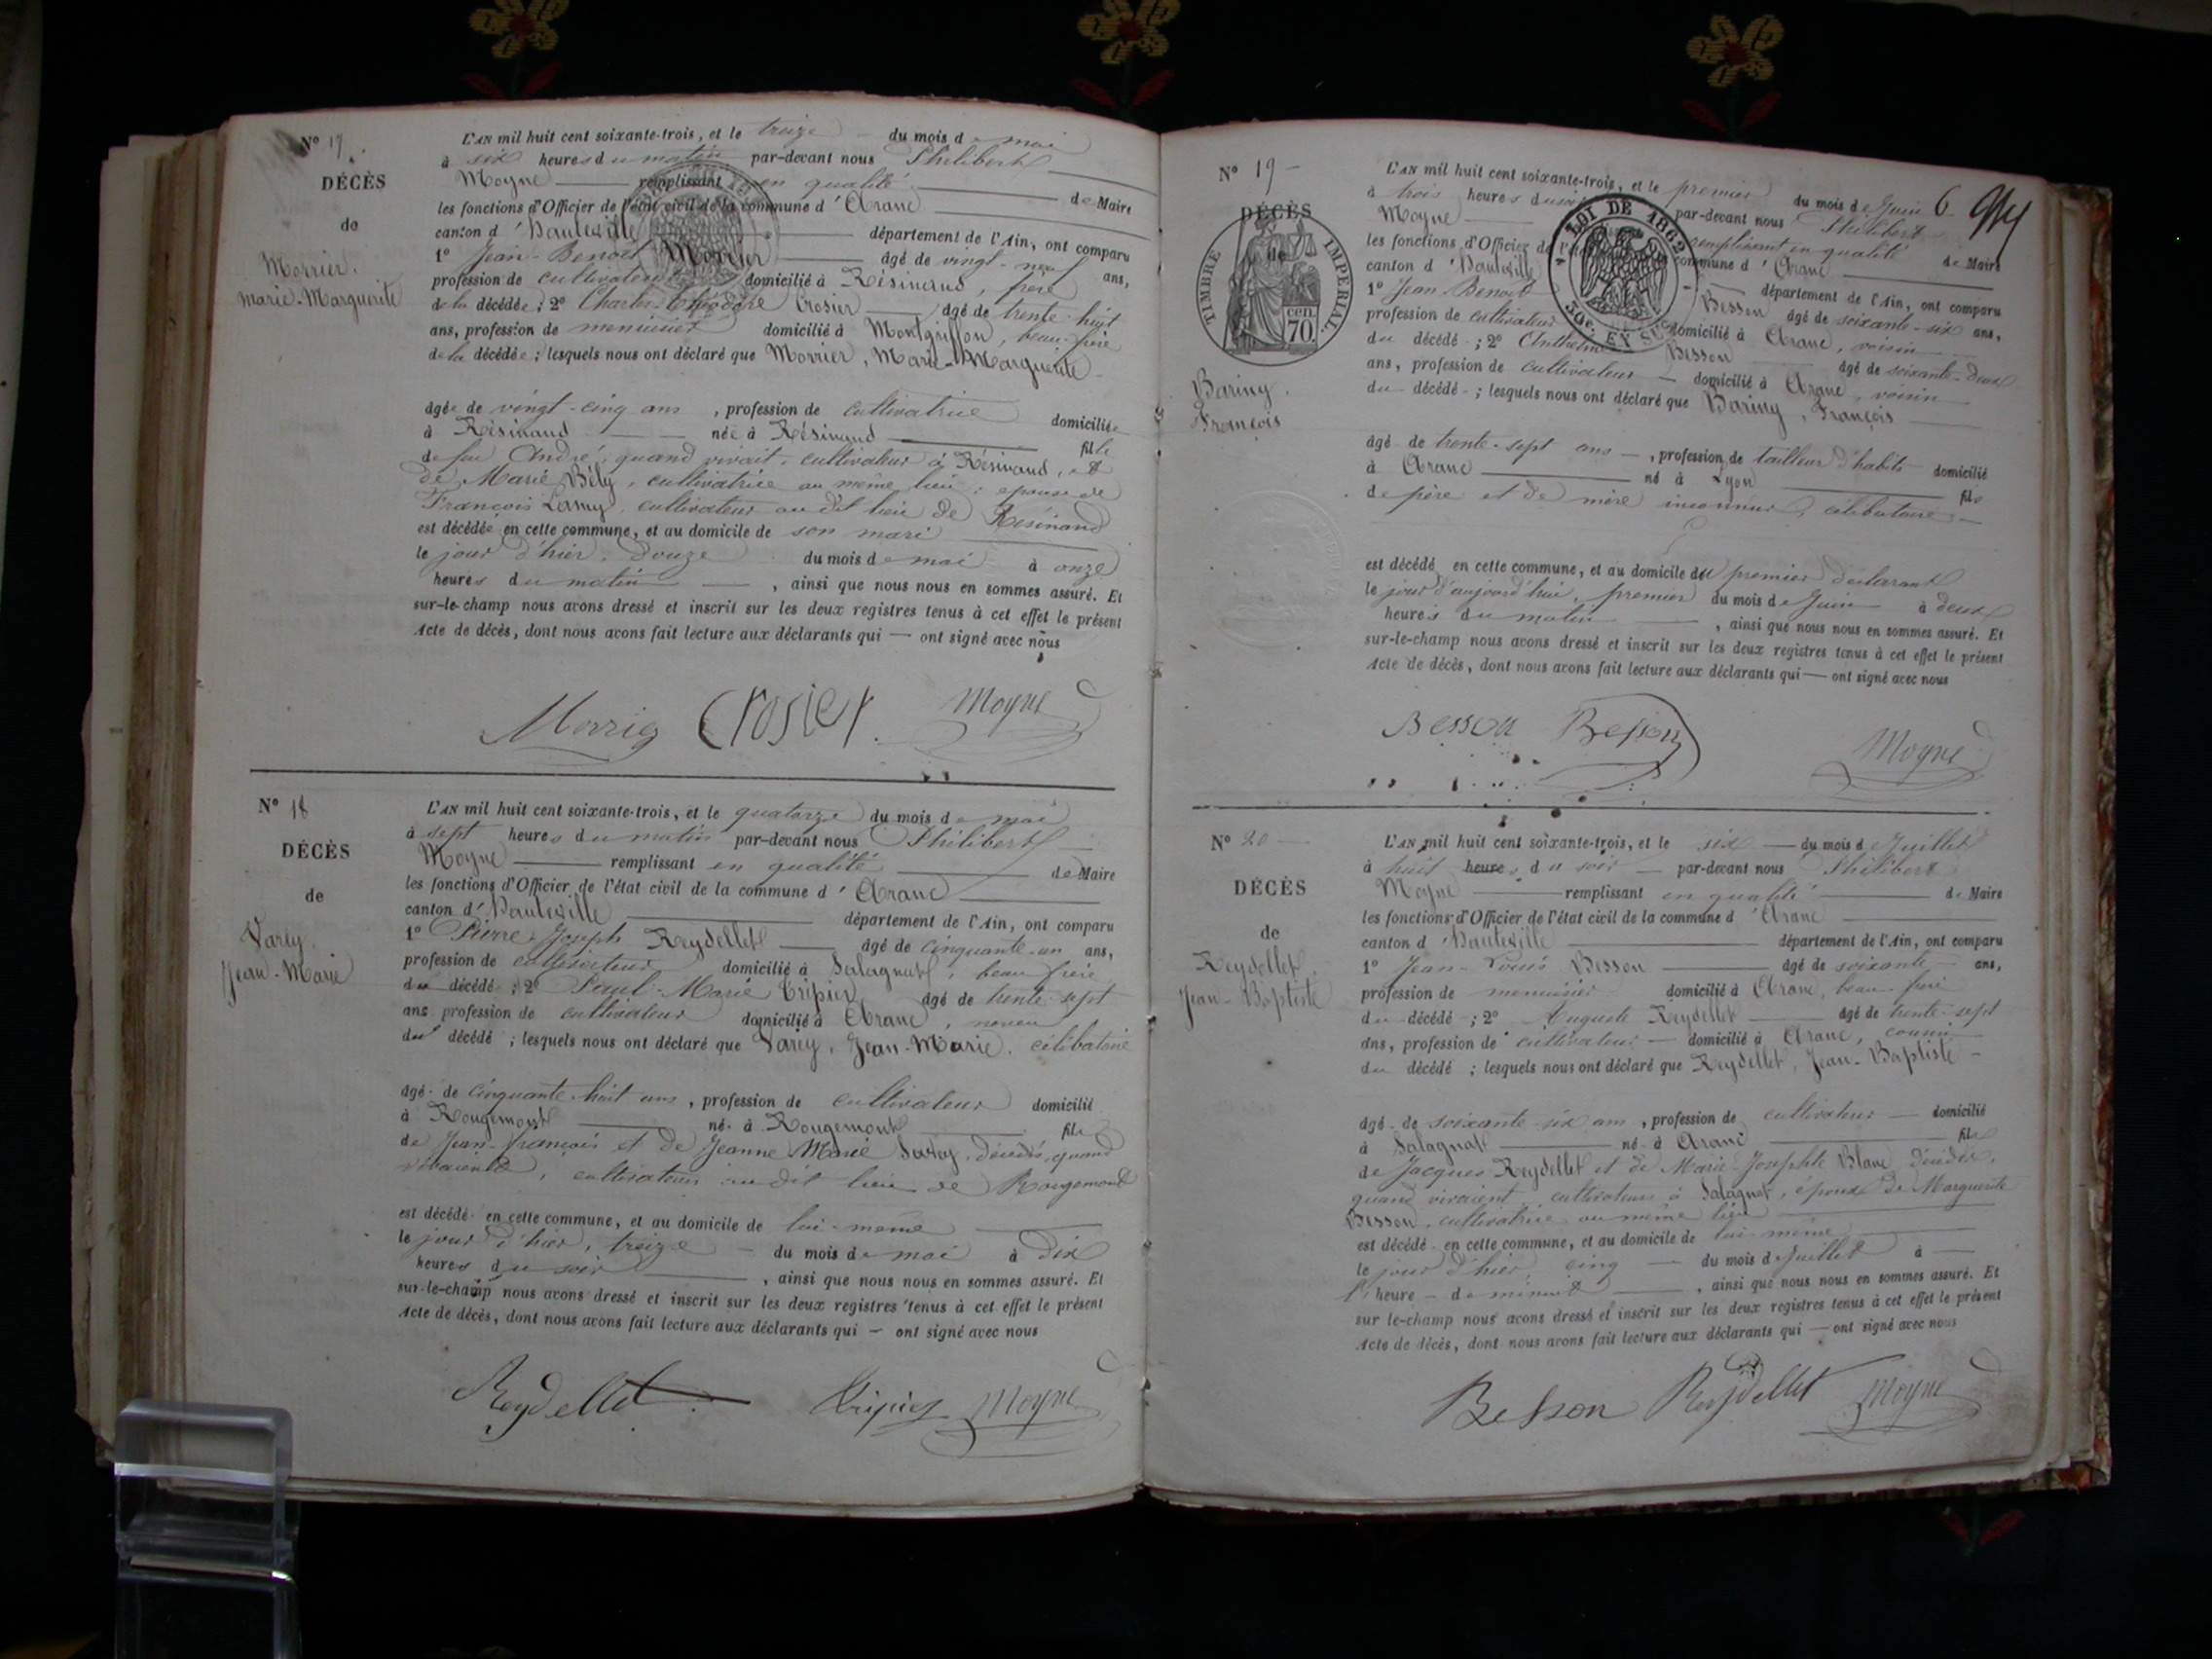 N° 17.
DÉCÈS
de
Morrier.
Marie-Marguerite
L'AN mil huit cent soixante-trois, et le treize du mois de mai
à six heures du matin par-devant nous Philibert
Moyne remplissant en qualité de Maire
les fonctions d'Officier de l'état civil de la commune d'Aranc
canton d'Hauteville département de l'Ain, ont comparu
1° Jean-Benoit Morrier âgé de vingt-neuf ans,
profession de cultivateur domicilié à Résinand, frère
de la décédée; 2° Charles Théodore Crosier âgé de trente-huit
ans, profession de menuisier domicilié à Montgriffon, beau-frère
de la décédée; lesquels nous ont déclaré que Morrier, Marie-Marguerite
âgée de vingt-cinq ans, profession de cultivatrice domiciliée
à Résinand née à Résinand fille
de feu André, quand vivait, cultivateur à Résinand, et
de Marie Bély, cultivatrice au même lieu; épouse de
François Lamy, cultivateur au dit lieu de Résinand
est décédée en cette commune, et au domicile de son mari
le jour d'hier, douze du mois de mai à onze
heures du matin, ainsi que nous nous en sommes assuré. Et
sur-le-champ nous avons dressé et inscrit sur les deux registres tenus à cet effet le présent
Acte de décès, dont nous avons fait lecture aux déclarants qui — ont signé avec nous
Morrier Crosier. Moyne
N° 18
DÉCÈS
de
Varey.
Jean-Marie
L'AN mil huit cent soixante-trois, et le quatorze du mois de mai
à sept heures du matin par-devant nous Philibert
Moyne remplissant en qualité de Maire
les fonctions d'Officier de l'état civil de la commune d'Aranc
canton d'Hauteville département de l'Ain, ont comparu
1° Pierre-Joseph Reydellet âgé de cinquante-un ans,
profession de cultivateur domicilié à Salagnat, beau frère
du décédé; 2° Paul-Marie Tripier, âgé de trente-sept
ans profession de cultivateur domicilié à Aranc, neveu
du décédé; lesquels nous ont déclaré que Varey, Jean-Marie, célibataire
âgé de cinquante huit ans, profession de cultivateur domicilié
à Rougemont né à Rougemont fils
de Jean-françois et de Jeanne Marie, décédés, quand
vivaient, cultivateurs au dit lieu de Rougemont
est décédé en cette commune, et au domicile de lui-même
le jour d'hier, treize du mois de mai à dix
heures du soir, ainsi que nous nous en sommes assuré. Et
sur-le-champ nous avons dressé et inscrit sur les deux registres tenus à cet effet le présent
Acte de décès, dont nous avons fait lecture aux déclarants qui — ont signé avec nous
Reydellet Tripier Moyne
N° 19
6
DÉCÈS
de
TIMBRE IMPÉRIAL.
70 cen.
LOI DE 1862
Bariny.
François
L'AN mil huit cent soixante-trois, et le premier du mois de Juin
à trois heures du soir par-devant nous Philibert
Moyne remplissant en qualité de Maire
les fonctions d'Officier de l'état commune d'Aranc
canton d'Hauteville département de l'Ain, ont comparu
1° Jean-Benoit Besson âgé de soixante-six ans,
profession de cultivateur domicilié à Aranc, voisin
du décédé; 2° Anthelme Besson âgé de soixante-deux
ans, profession de cultivateur — domicilié à Aranc, voisin
du décédé; lesquels nous ont déclaré que Bariny, François
âgé de trente-sept ans —, profession de tailleur d'habits domicilié
à Aranc né à Lyon fils
de père et de mère inconnus, célibataire
est décédé en cette commune, et au domicile du premier déclarant
le jour d'aujourd'hui, premier du mois de Juin à deux
heures du matin, ainsi que nous nous en sommes assuré. Et
sur-le-champ nous avons dressé et inscrit sur les deux registres tenus à cet effet le présent
Acte de décès, dont nous avons fait lecture aux déclarants qui — ont signé avec nous
Besson Besson Moyne
N° 20
DÉCÈS
de
Reydellet.
Jean-Baptiste
L'AN mil huit cent soixante-trois, et le six — du mois de Juillet
à huit heures du soir — par-devant nous Philibert
Moyne remplissant en qualité de Maire
les fonctions d'Officier de l'état civil de la commune d'Aranc
canton d'Hauteville département de l'Ain, ont comparu
1° Jean-Louis Besson âgé de soixante ans,
profession de menuisier domicilié à Aranc, beau-frère
du décédé; 2° Auguste Reydellet âgé de trente-sept
ans, profession de cultivateur — domicilié à Aranc, cousin
du décédé; lesquels nous ont déclaré que Reydellet, Jean-Baptiste —
âgé de soixante-six ans, profession de cultivateur — domicilié
à Salagnat né à Aranc fils
de Jacques Reydellet et de Marie-Josephte Blanc, décédés,
quand vivaient, cultivateurs à Salagnat, époux de Marguerite
Besson, cultivatrice au même lieu
est décédé en cette commune, et au domicile de lui-même
le jour d'hier, cinq — du mois de Juillet à —
l'heure — de minuit, ainsi que nous nous en sommes assuré. Et
sur le-champ nous avons dressé et inscrit sur les deux registres tenus à cet effet le présent
Acte de décès, dont nous avons fait lecture aux déclarants qui — ont signé avec nous
Besson Reydellet Moyne